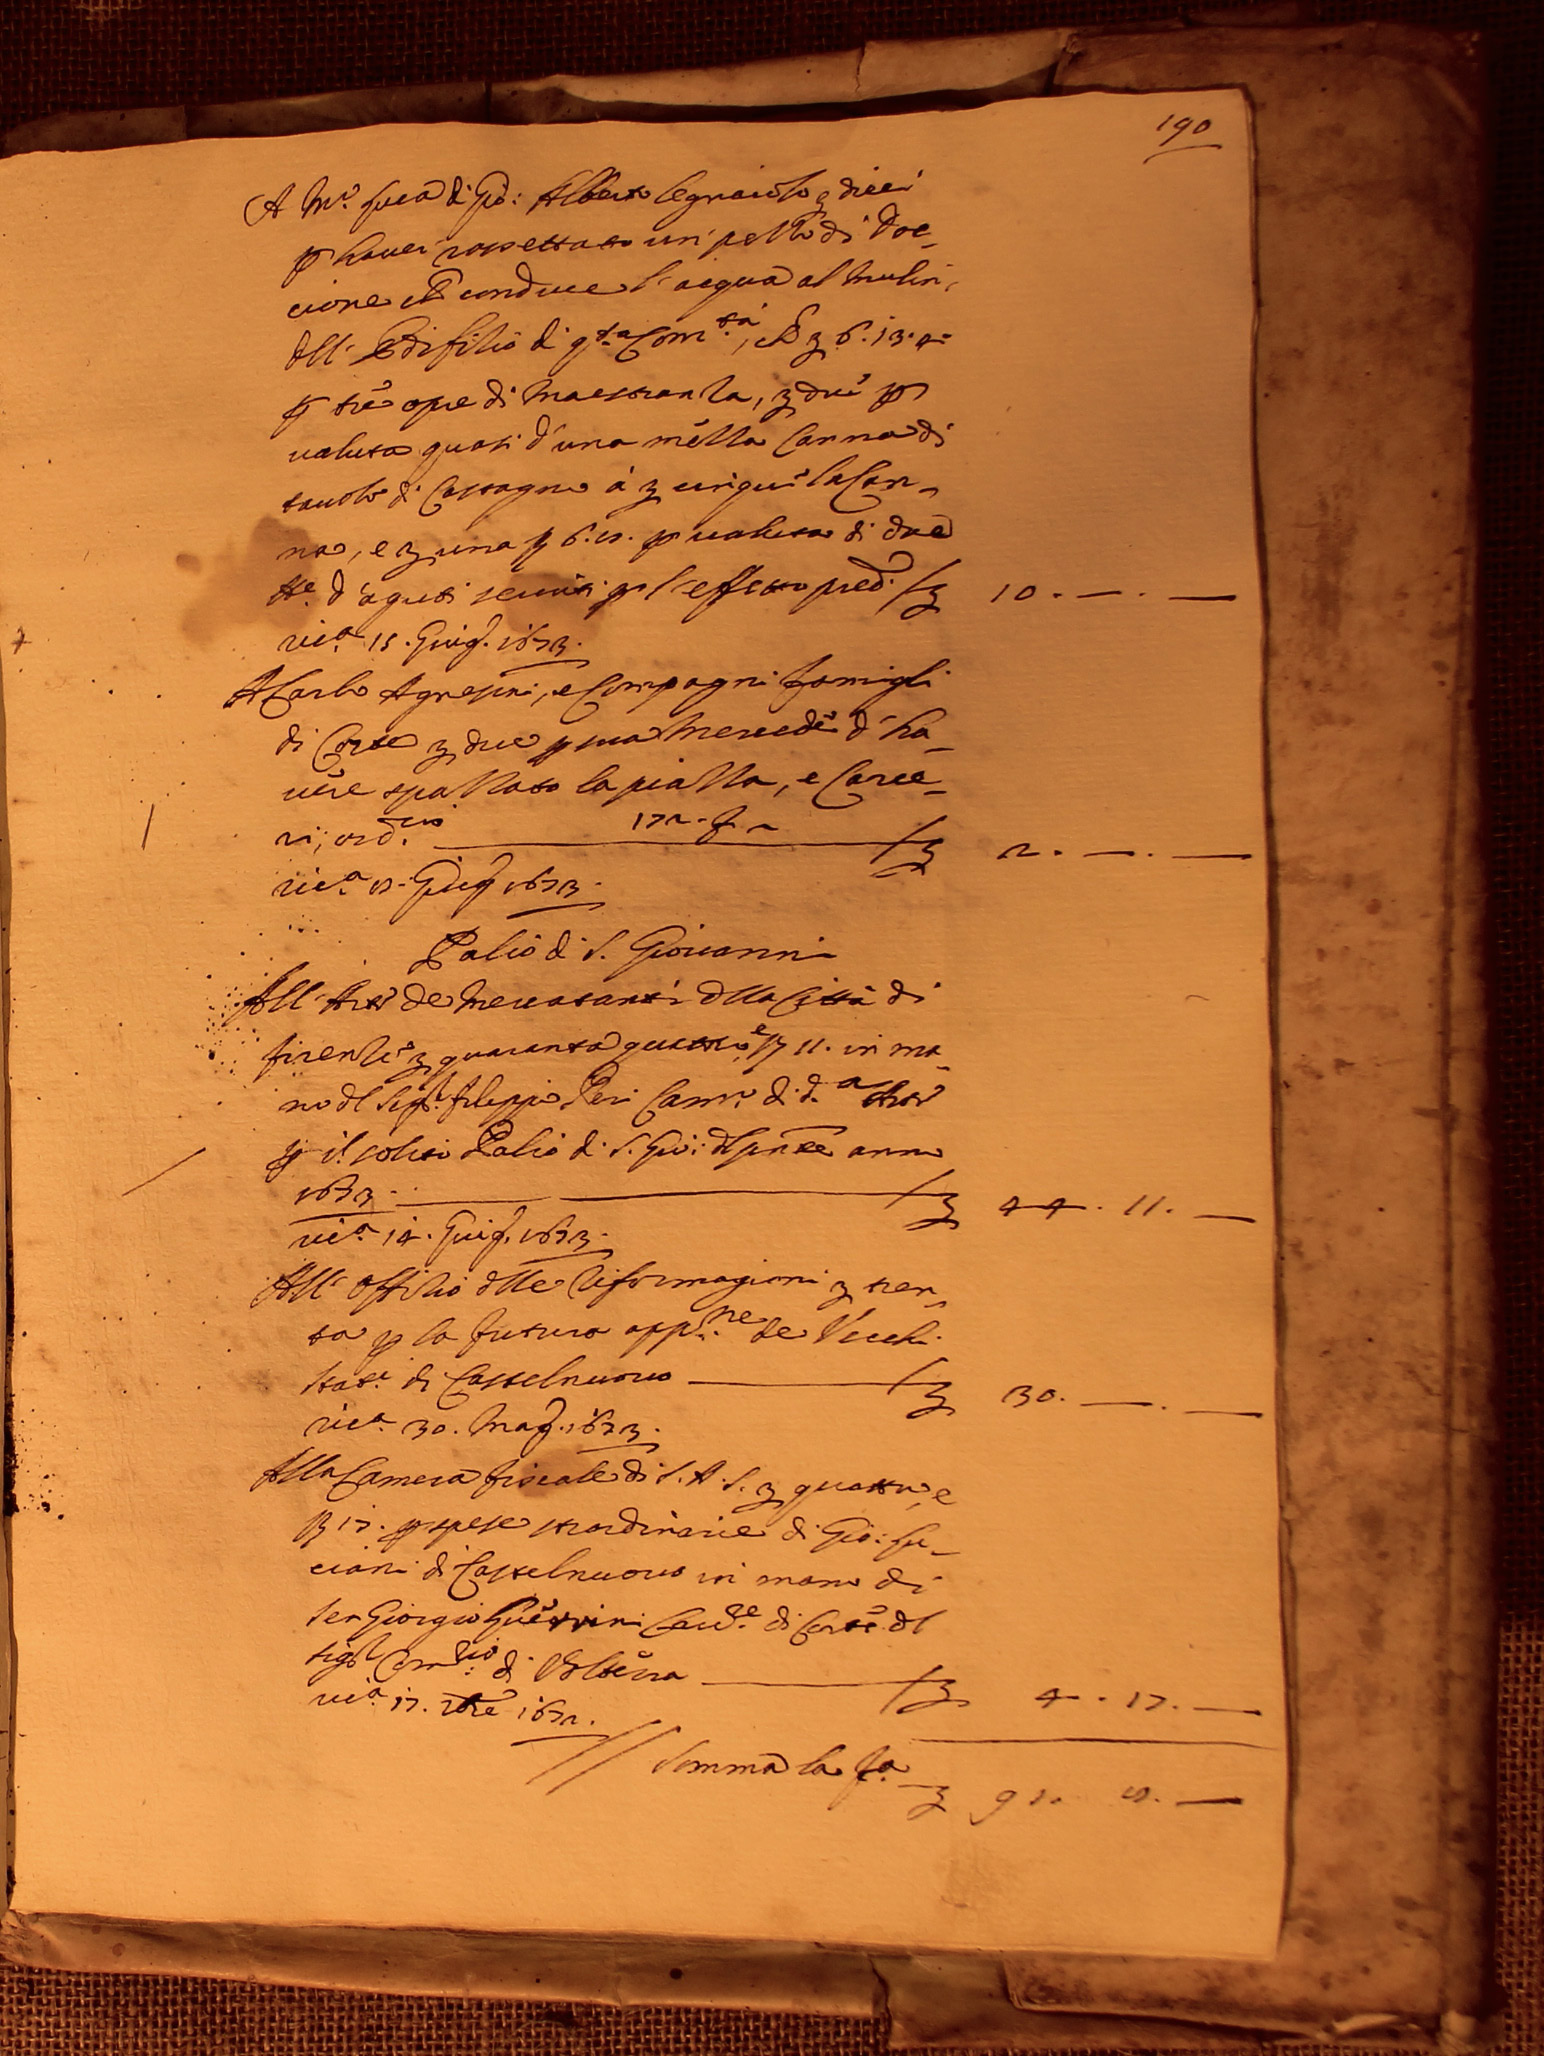 190
A M.º Luca di Gio: Alberto legnaiolo £ dieci
p haver rassettato un pezzo di Doc-
cione che conduce l'acqua al mulin,
dell' Edifitio di q.ta Com.tà, che £ 6.13.4
p tre opre di maestranza, £ due p
valuta quasi d'una mezza Canna di
tavole di Castagno à £ cinque la Can-
na, e £ una p valuta di due
d'aguti serviti p l'effetto pred.º £ 10. — . —
ric.ta 15. Giug. 1673.
A Carlo Agnesini, e Compagni famigli
di Corte £ due p sua mercede d'ha-
vere spazzato la piazza, e Carce-
ri, ord. £ 2. — . —
ric.ta Giug 1673.
Palio di S. Giovanni
All' Arte de Mercatanti della Città di
firenze £ quaranta quattro, e ß 11. in ma-
no del Sig.r filippo Neri Cam.º di d.ta Arte
p il solito Palio di S. Gio: del pnte anno
1673. £ 44. 11. —
ric.ta 14. Giug. 1673.
All' Offitio delle Riformagioni £ tren-
ta p la futura app.ne de Vecchi
Stat.i di Castelnuovo £ 30. — . —
ric.ta 30. Mag. 1673.
Alla Camera fiscale di S. A. S. £ quattro, e
ß 17. p spese straordinarie di Gio: Lu-
ciani di Castelnuovo in mano di
ser Giorgio Guerrini di Corte del
sig.r Com.rio di Volterra £ 4. 17. —
ric.ta 17. 1672.
Somma la f.a £ 91. 8. —